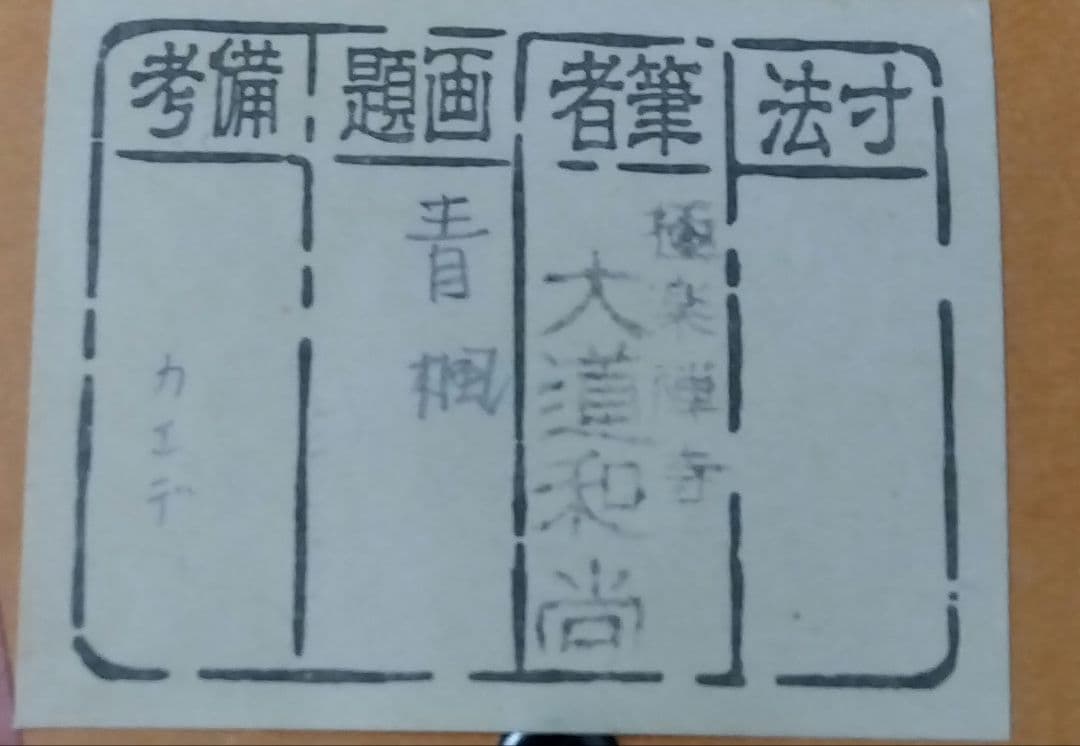 寸法
筆者
極楽禅寺
大道和尚
画題
青楓
備考
カエデ